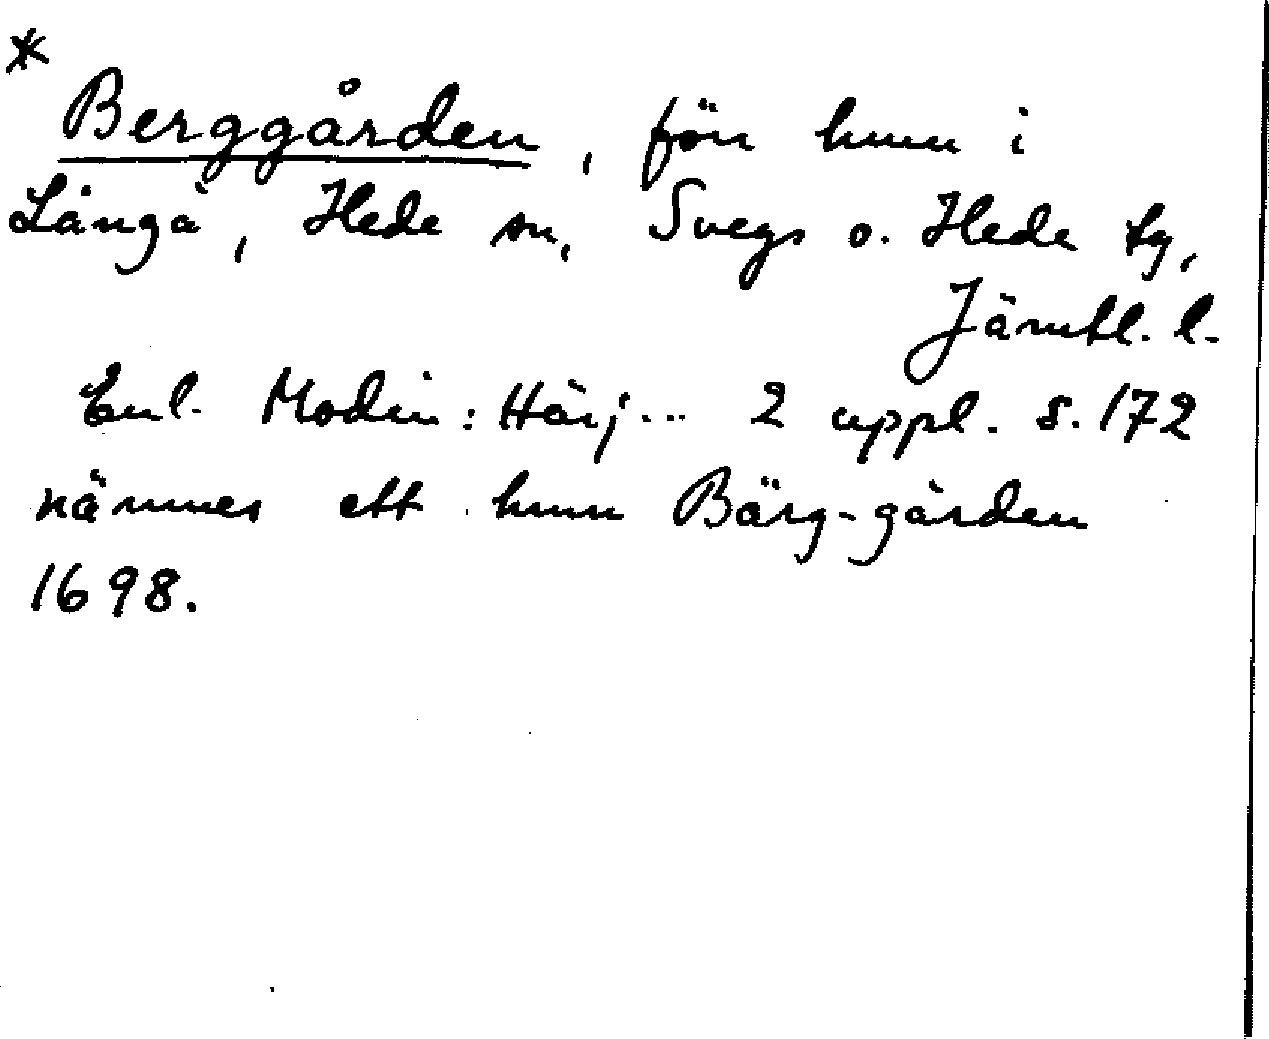 *
Berggården, förr hmn i
Långå, Hede sn, Svegs o. Hede tg,
Jämtl. l.
Enl. Modin: Härj... 2 uppl. s. 172
nämnes ett hmn Bärg-gården
1698.